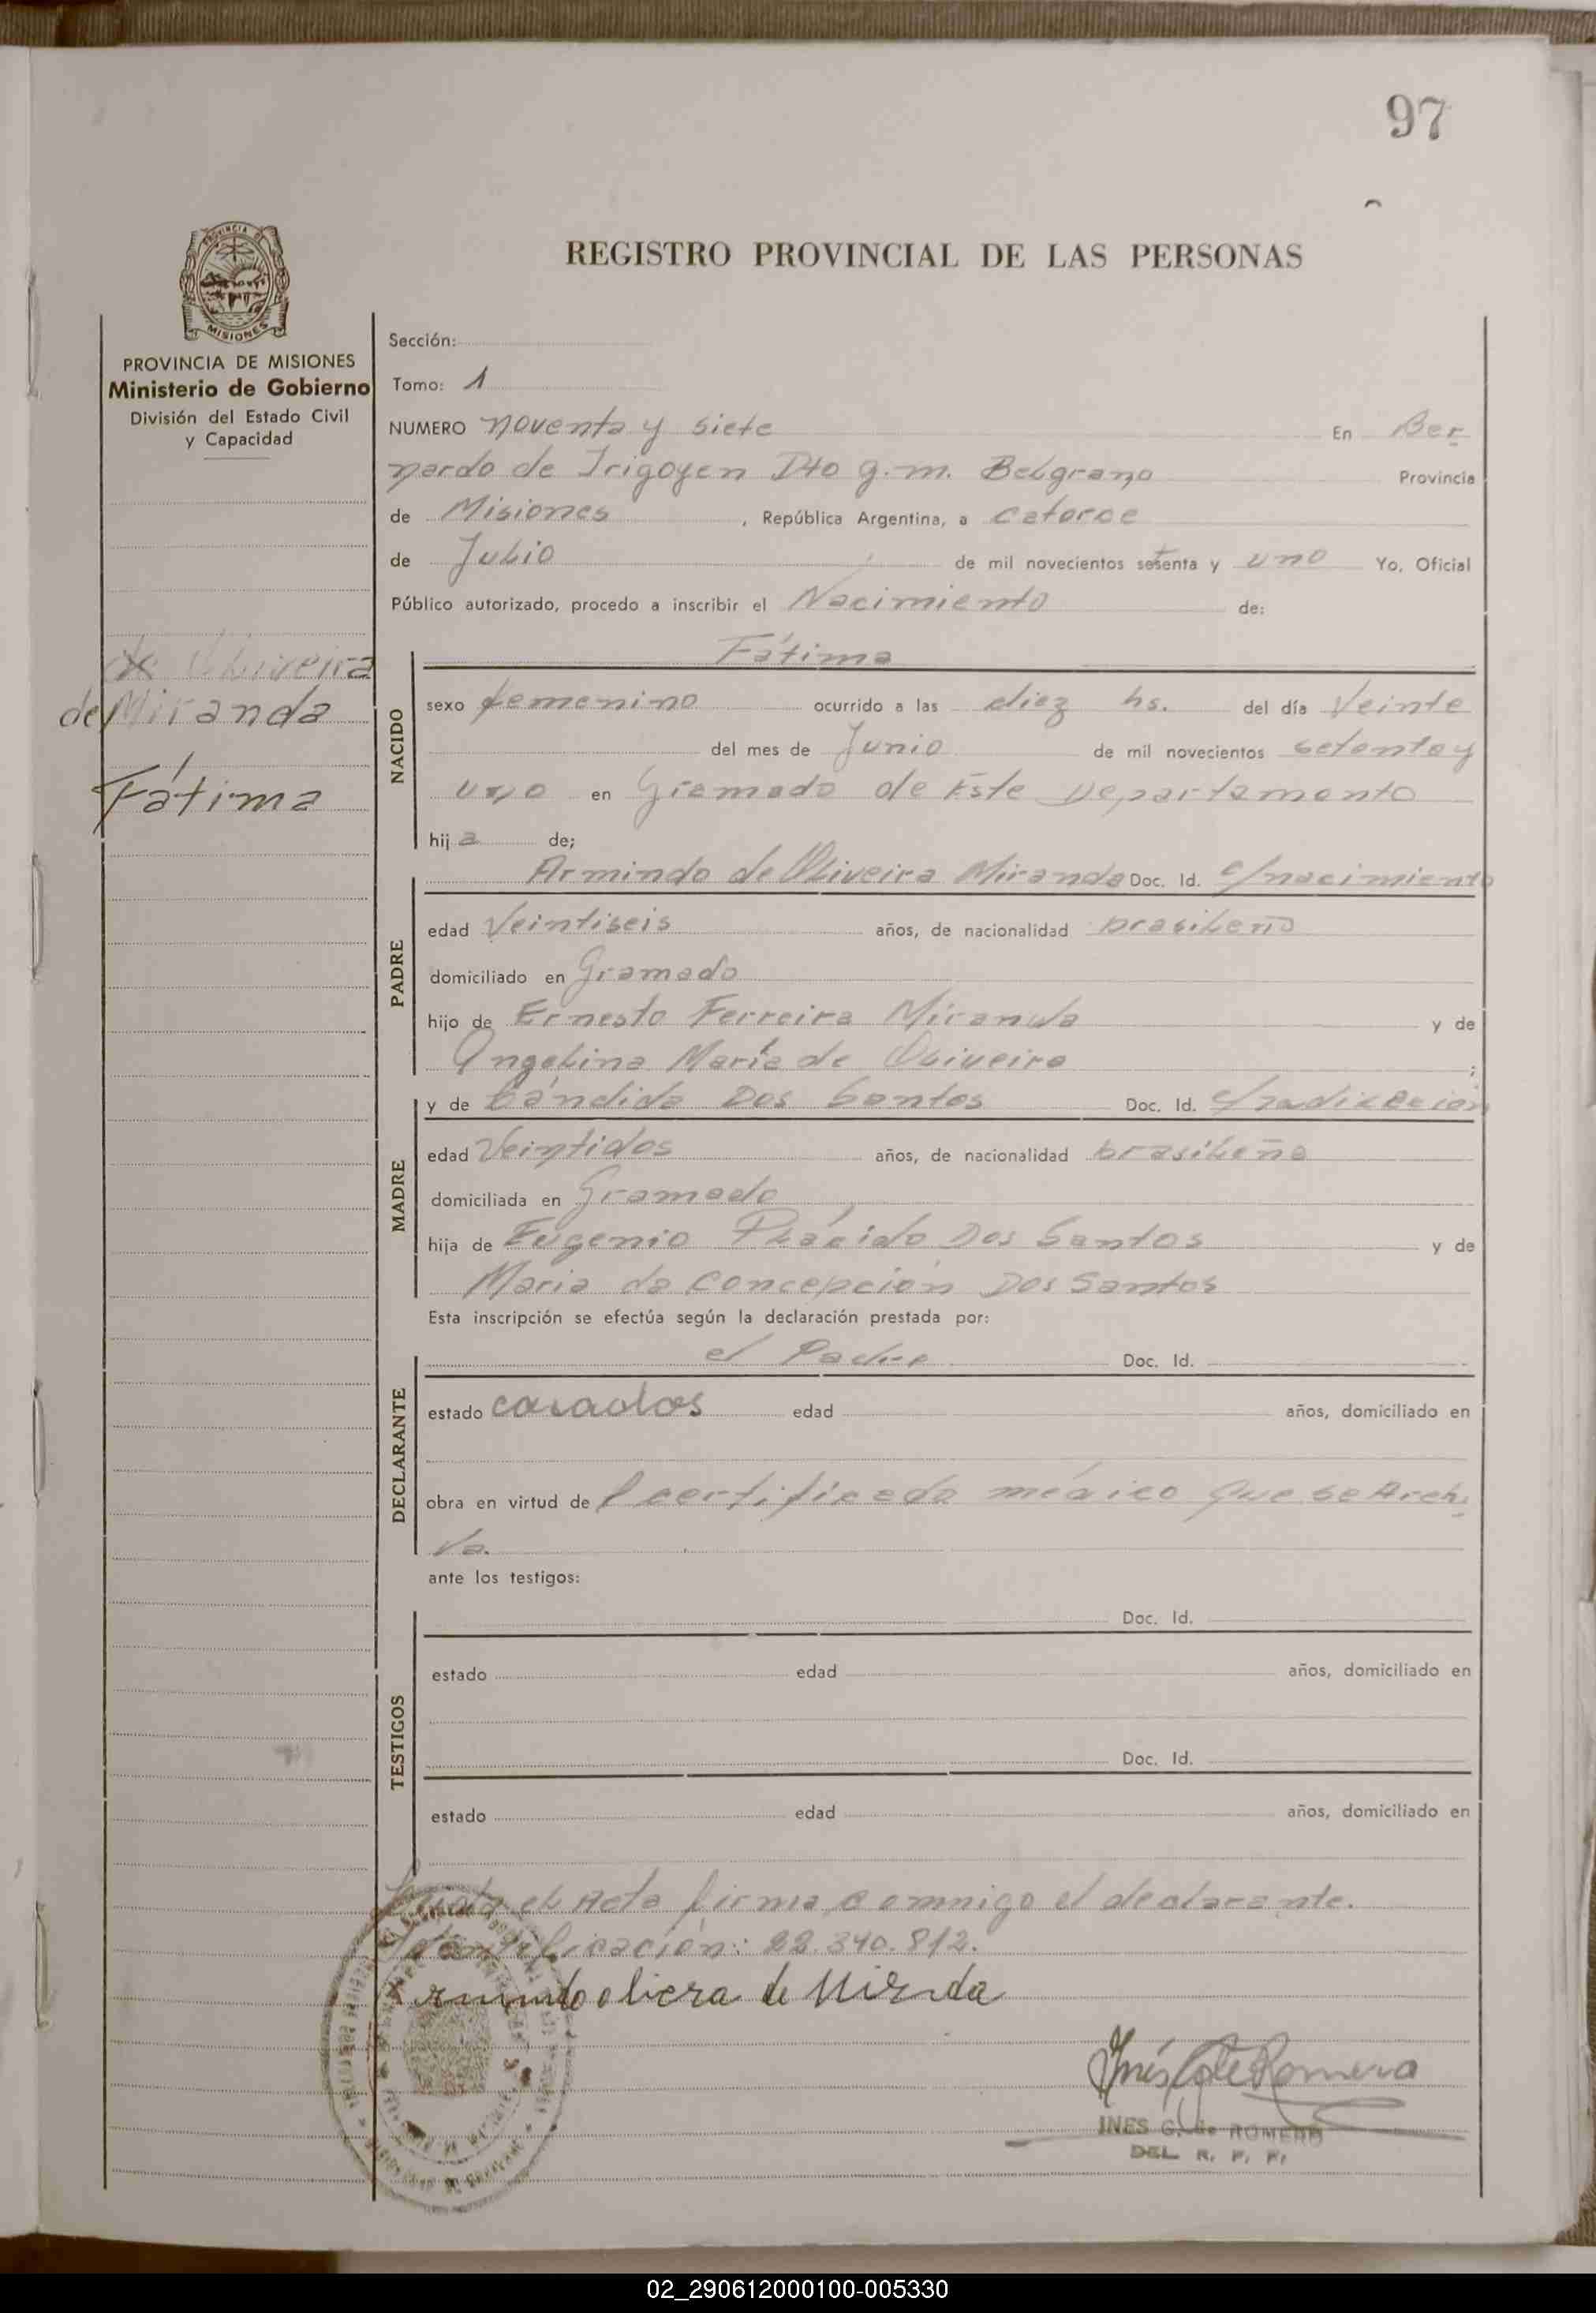 97
REGISTRO PROVINCIAL DE LAS PERSONAS
PROVINCIA DE
MISIONES
PROVINCIA DE MISIONES
Ministerio de Gobierno
División del Estado Civil
y Capacidad
de Oliveira
de Miranda
Fátima
Sección:
Tomo: 1
NUMERO noventa y siete En Ber
nardo de Irigoyen Dto g.m. Belgrano Provincia
de Misiones, República Argentina, a catorce
de Julio de mil novecientos setenta y uno Yo, Oficial
Público autorizado, procedo a inscribir el Nacimiento de:
NACIDO
Fátima
sexo femenino ocurrido a las diez hs. del día Veinte
del mes de Junio de mil novecientos setenta y
uno en Gramado de Este Departamento
hija de;
PADRE
Armindo de Oliveira Miranda Doc. Id. c/nacimiento
edad Veintiseis años, de nacionalidad brasileño
domiciliado en Gramado
hijo de Ernesto Ferreira Miranda y de
Angelina María de Oliveira ;
MADRE
y de Cándida Dos Santos Doc. Id. c/radicación
edad Veintidos años, de nacionalidad brasileña
domiciliada en Gramado
hija de Eugenio Plácido Dos Santos y de
Maria da Concepción Dos Santos
Esta inscripción se efectúa según la declaración prestada por:
DECLARANTE
el Padre Doc. Id.
estado casados edad años, domiciliado en
obra en virtud del certificado médico que se Archi
va.
ante los testigos:
TESTIGOS
Doc. Id.
estado edad años, domiciliado en
Doc. Id.
estado edad años, domiciliado en
el Acta firma conmigo el declarante.
Identificación: 22.340.812.
de Miranda
Inés G de Romero
INES G. de ROMERO
DEL R. P. P.
02_290612000100-005330